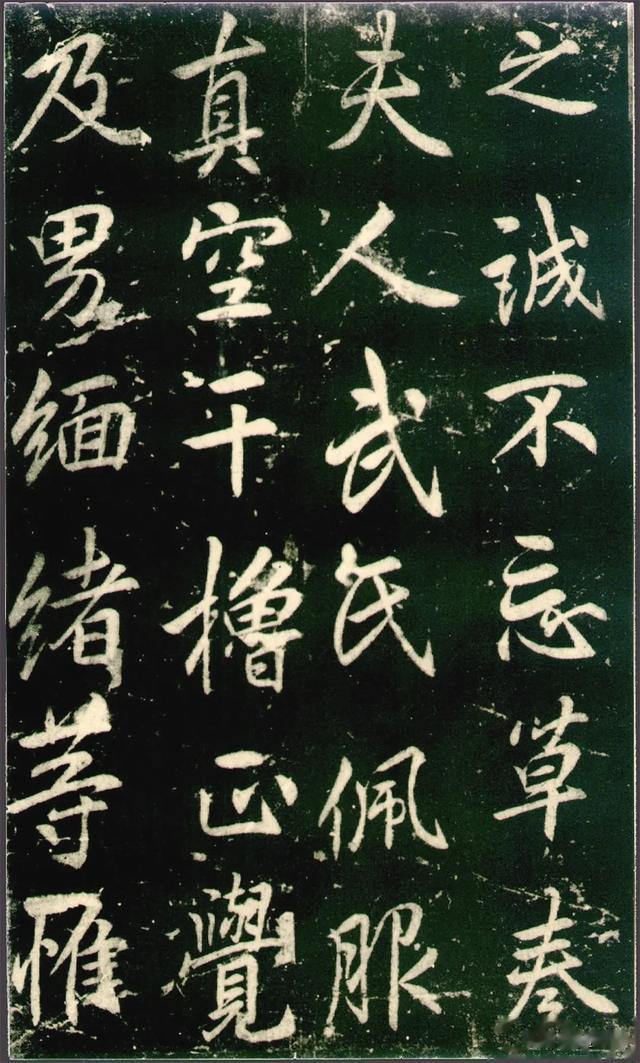 之誠不忘草奏
夫人武氏佩服
真空干櫓正覺
及男緬緒等雁